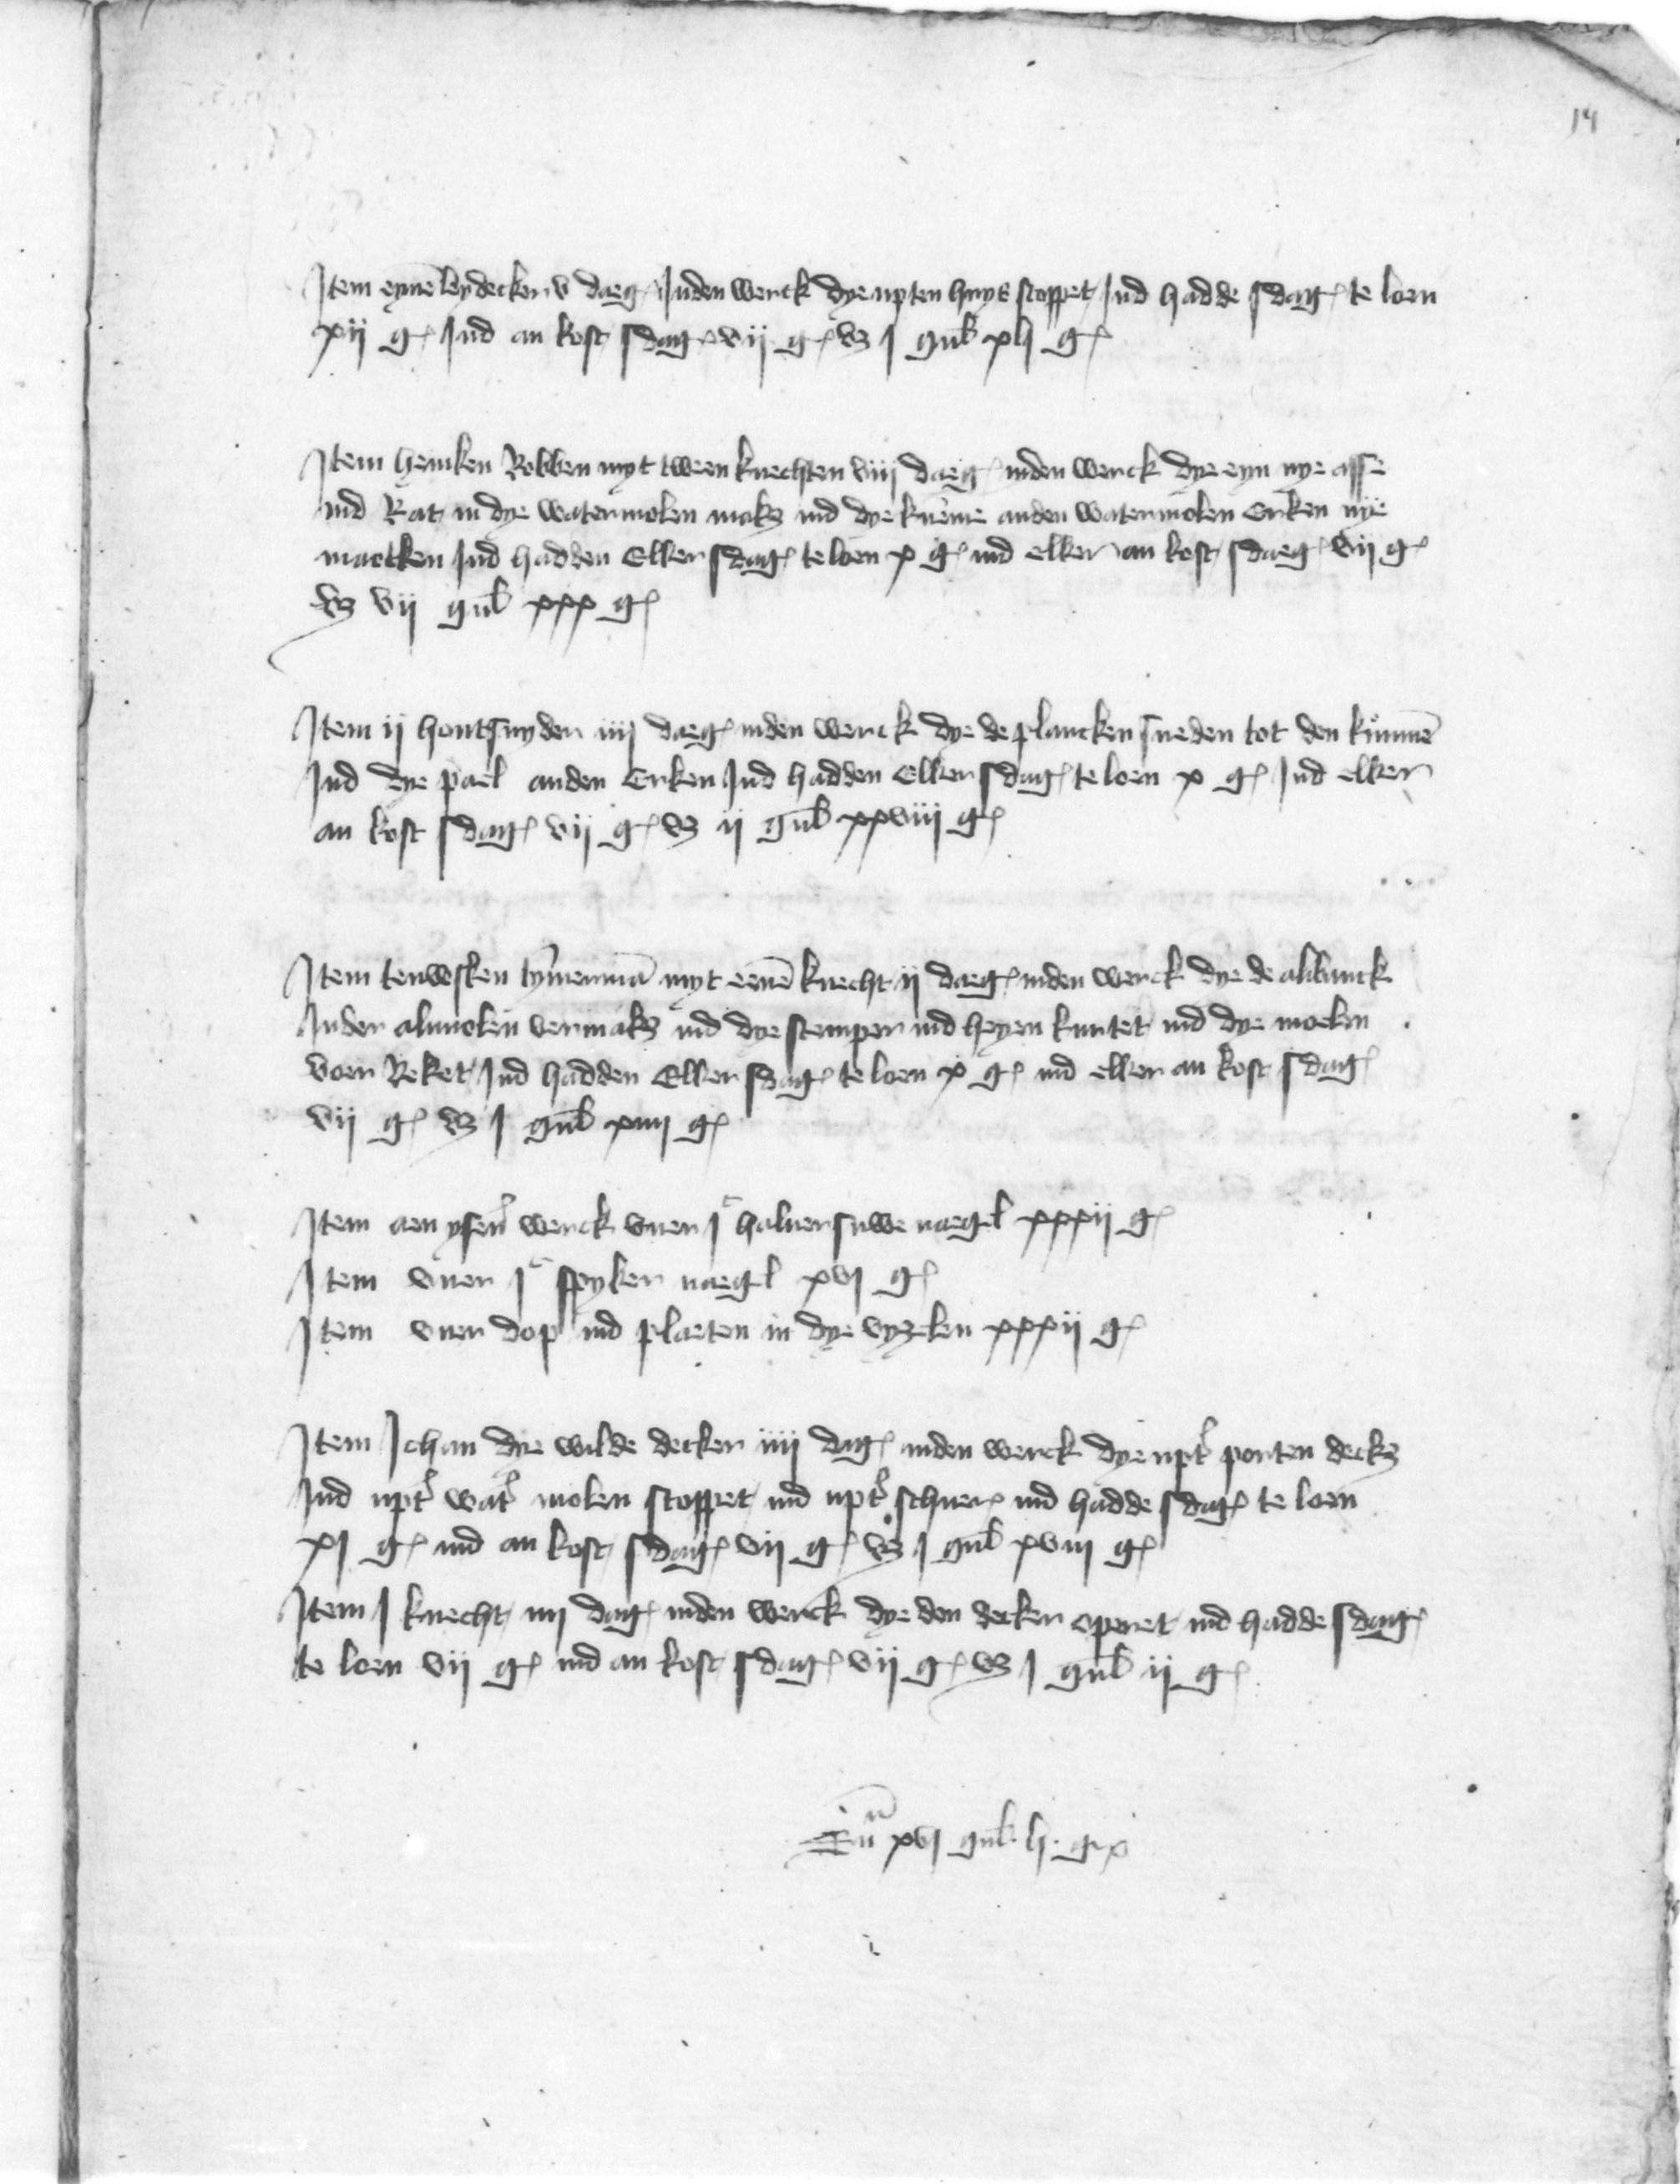 14
Item eyme leydecker v daeg Inden werck dye upten huys stoppet Ind hadde sdag te loen
xii g Ind an kost sdag vii g vz I gul xli g
Item henken Robben myt tween knechten viii daeg inden werck dye eyn nye asse
ind Rat in dye watermolen makz ind dye kneme anden watermolen Erken nye
maecken Ind hadden Elker sdag te loen x g ind elker an kost sdaeg vii g
vz vii gul xxx g
Item ii hontsnyder iiii daeg inden werck dye de plancken sneden tot den kummē
Ind dye pael anden Erken Ind hadden Elker sdag te loen x g Ind elker
an kost sdag vii g vz ii gul xxviii g
Item tymermā myt eenē knecht ii daeg inden werck dye de
Inder alimolen vermakz ind dye stemper ind heyen ind dye moelen
voer Reket Ind hadden Elker sdag te loen x g ind elker an kost sdag
vii g vz I gul xiiii g
Item aen ysen werck vuer Ic haluersuwe naegel xxxii g
Item vuer Ic spyker naegel xvi g
Item vuer dop ind plaeten in dye vyzelen xxxii g
Item Johan dye wilde decker iiii dag inden werck dye upt porten deckz
Ind upt wat molen stoppet ind upt schuer ind hadde sdag te loen
xi g ind an kost sdag vii g vz I gul xviii g
Item I knecht iiii dag inden werck dye den decker operet ind hadde sdag
te loen vii g ind an kost sdag vii g vz I gul ii g
xvi gul li g